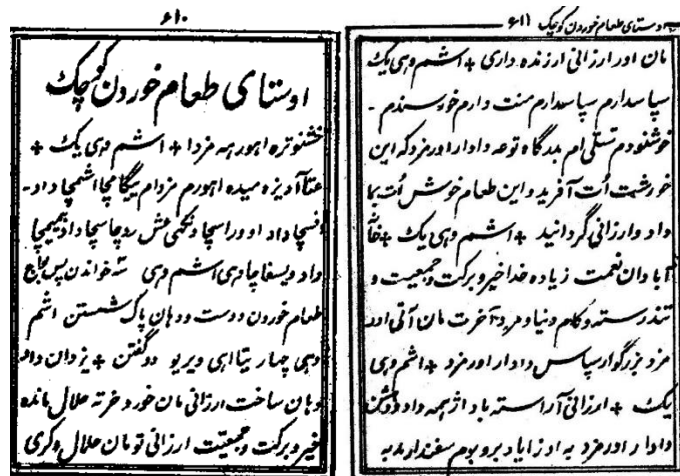 ۶۱۰
اوستای طعام خوردن کوچک
خشنوتره اهورهه مزدا + اشم وهی یک +
میده اهورم مزدام ییگامچا اشمچا داد-
افسچا داد اوراسچا داد
داد ویسفاچا اشم وهی سه خواندن پس
طعام خوردن و دست و دهان پاک شستن اشم
وهی چهار یتا اهی ویریو دو گفتن + یزدان داد
ومان ساخت ارزانی مان خورد خرته حلال مانده
خیر و برکت و جمعیت ارزانی تو مان حلال وکری
اوستای طعام خوردن کوچک ۶۱۱
مان اور ارزانی ارزنده داری + اشم وهی یک
سپاسدارم سپاسدارم منت دارم خورسندم -
خوشنودم تسلی ام بدرگاه توعه دادار اورمزد که این
خورشیت اُت آفرید و این طعام خوش اُت بما
داد و ارزانی گردانید + اشم وهی یک +
آبادان نعمت زیاده خدا خیر و برکت و جمعیت و
تندرسته و کام دنیا و مزد آخرت مان آئی اور
مزد بزرگوار سپاس دادار اورمزد + اشم وهی
یک + ارزانی آراسته باد از همه داد و دهش
دادار اورمزد به افزایاد بر و بوم سفندارمد به